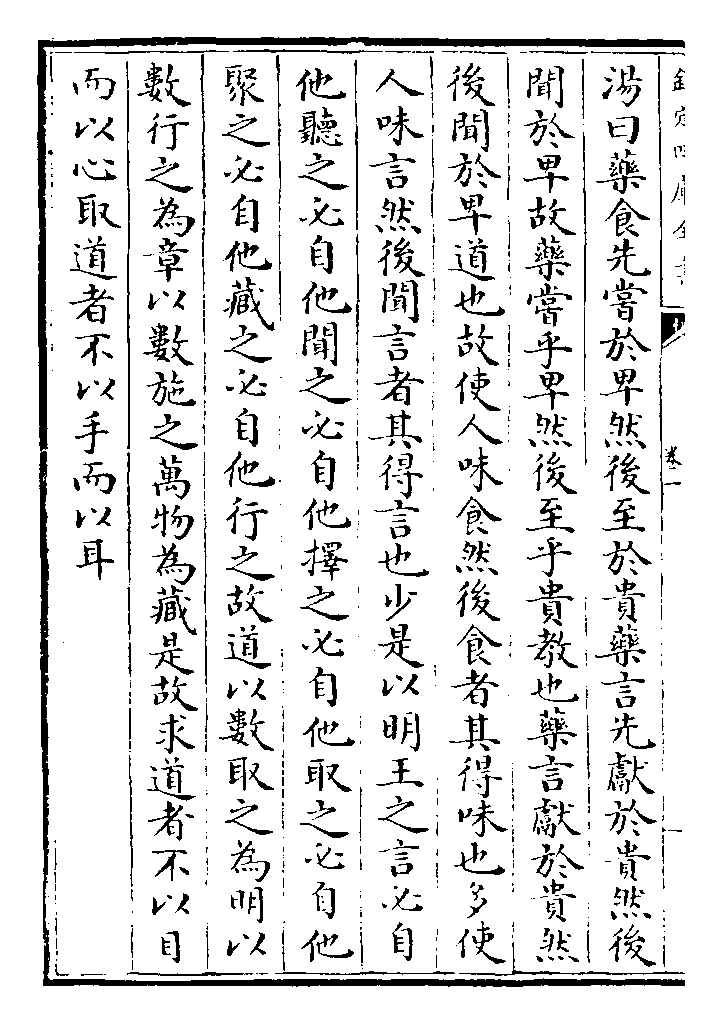 欽定四庫全書
卷一
湯曰藥食先嘗於卑然後至於貴藥言先獻於貴然後
聞於卑故藥嘗乎卑然後至乎貴教也藥言獻於貴然
後聞於卑道也故使人味食然後食者其得味也多使
人味言然後聞言者其得言也少是以明王之言必自
他聽之必自他聞之必自他擇之必自他取之必自他
聚之必自他藏之必自他行之故道以數取之為明以
數行之為章以數施之萬物為藏是故求道者不以目
而以心取道者不以手而以耳